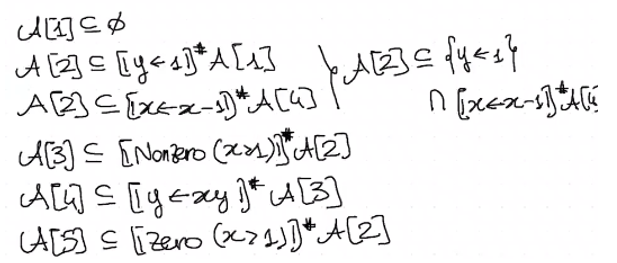 A[1] ⊆ ∅
A[2] ⊆ [[y ← 1]]# A[1]
A[2] ⊆ [[x ← x-1]]# A[4]
} A[2] ⊆ {y ← 1}
∩ [[x ← x-1]]# A[4]
A[3] ⊆ [[Nonzero (x>1)]]# A[2]
A[4] ⊆ [[y ← xy]]# A[3]
A[5] ⊆ [[Zero (x>1)]]# A[2]